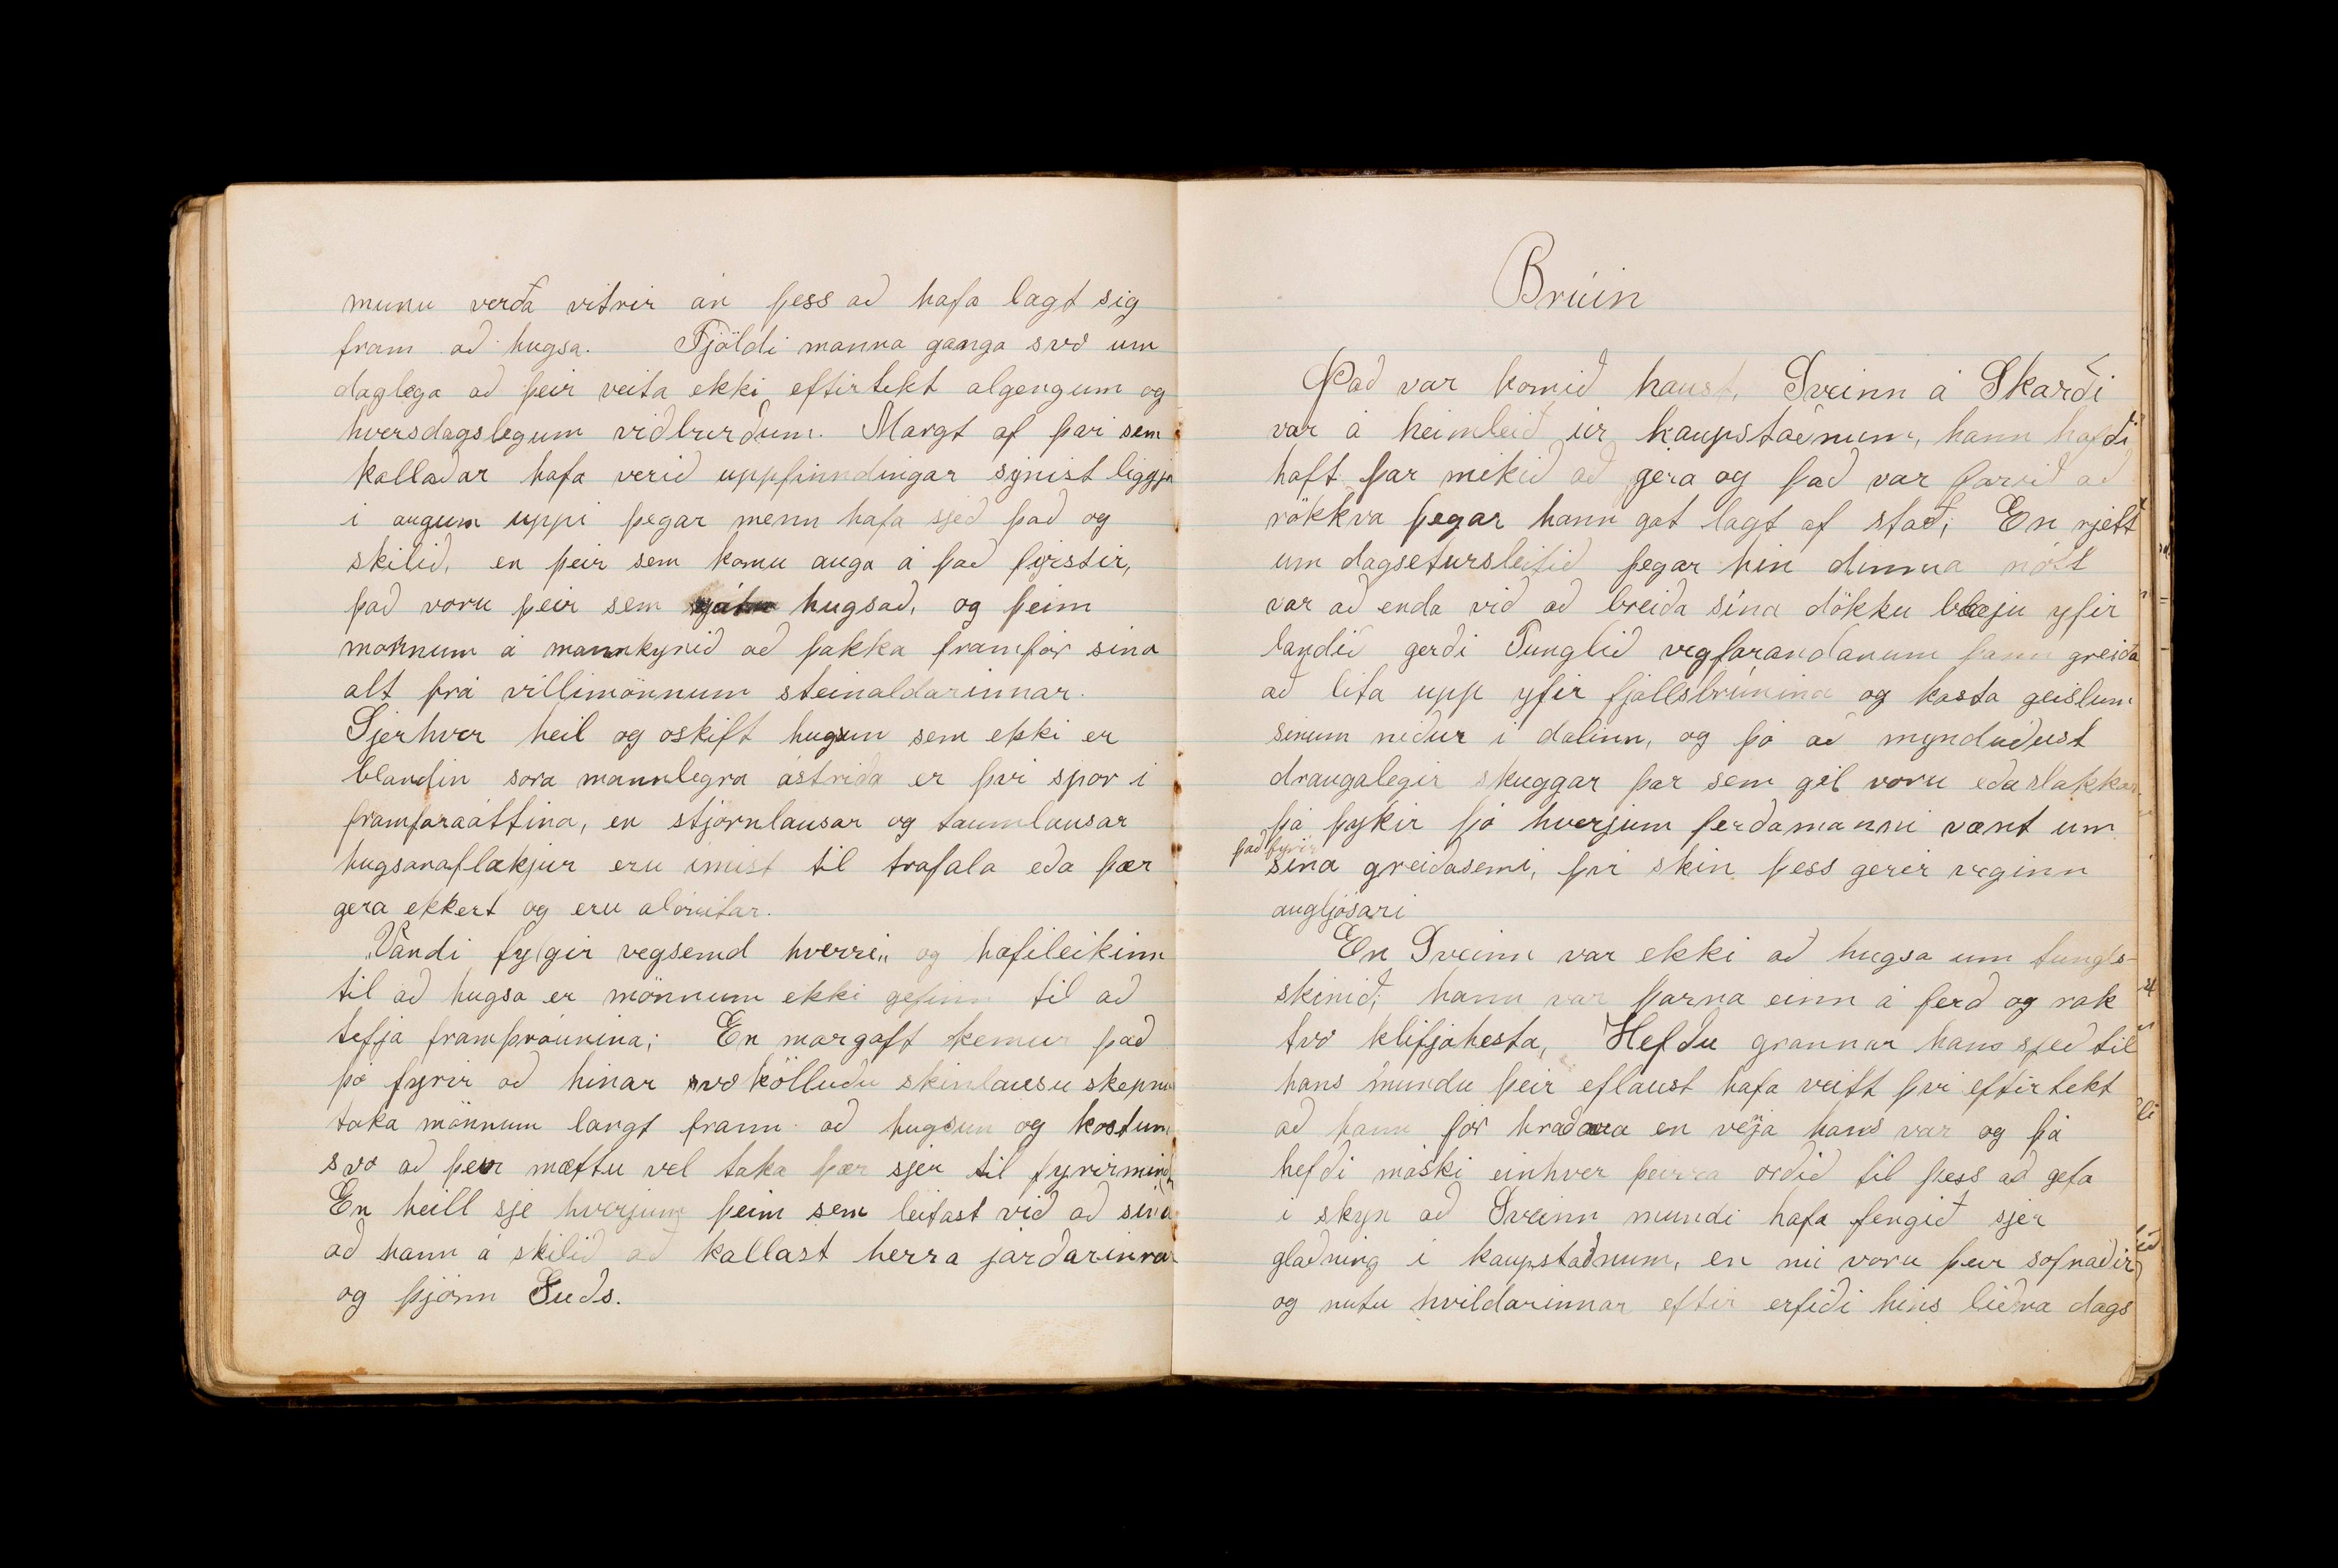 munu verða vitrir án þess að hafa lagt sig
fram að hugsa. Fjöldi manna ganga svo um
daglega að þeir veita ekki eftirtekt algengum og
hversdagslegum viðburðum. Margt af því sem
kallaðar hafa verið uppfinndingar sýnist liggja
i augum uppi þegar menn hafa sjeð það og
skilið, en þeir sem komu auga á það fyrstir,
það voru þeir sem gátu hugsað, og þeim
mönnum á mannkynið að þakka framför sína
alt frá villimönnum steinaldarinnar.
Sjerhver heil og óskift hugsun sem ekki er
blandin sora mannlegra ástriða er því spor i
framfaraáttina, en stjórnlausar og taumlausar
hugsanaflækjur eru ímist til trafala eða þær
gera ekkert og eru alónítar.
„Vandi fylgir vegsemd hverri„ og hæfileikinn
til að hugsa er mönnum ekki gefinn til að
tefja framþróunina; En margoft kemur það
þó fyrir að hinar svo kölluðu skinlausu skepnu
taka mönnum langt framm að hugsun og kostum
svo að þeir mættu vel taka þær sjer til fyrirmind
En heill sje hverjum þeim sem leitast við að sína
að hann á skilið að kallast herra jarðarinnar
og þjónn Guðs.
Brúin
Það var komið haust, Sveinn á Skarði
var á heimleið úr kaupstaðnum, hann hafði
haft þar mikið að gera og það var farið að
rökkva þegar hann gat lagt af stað; En rjett
um dagsetursleitið þegar hin dimma nótt
var að enda við að breiða sína dökku blæju yfir
landið gerði Tunglið vegfarandanum þann greiða
að líta upp yfir fjallsbrúnina og kasta geislum
sínum niður í dalinn, og þó að mynduðust
draugalegir skuggar þar sem gil voru eða slakkar
þá þykir þó hverjum ferðamanni vænt um
það fyrir
sína greiðasemi, því skin þess gerir veginn
augljósari
En Sveinn var ekki að hugsa um tungls-
skinið; hann var þarna einn á ferð og rak
tvo klifjahesta, Hefðu grannar hans sjeð til
hans mundu þeir eflaust hafa veitt því eftirtekt
að hann fór hraðara en veja hans var og þá
hefði máski einhver þeirra orðið til þess að gefa
i skyn að Sveinn mundi hafa fengið sjer
glaðning i kaupstaðnum, en nú voru þeir sofnaðir
og nutu hvildarinnar eftir erfiði hins liðna dags